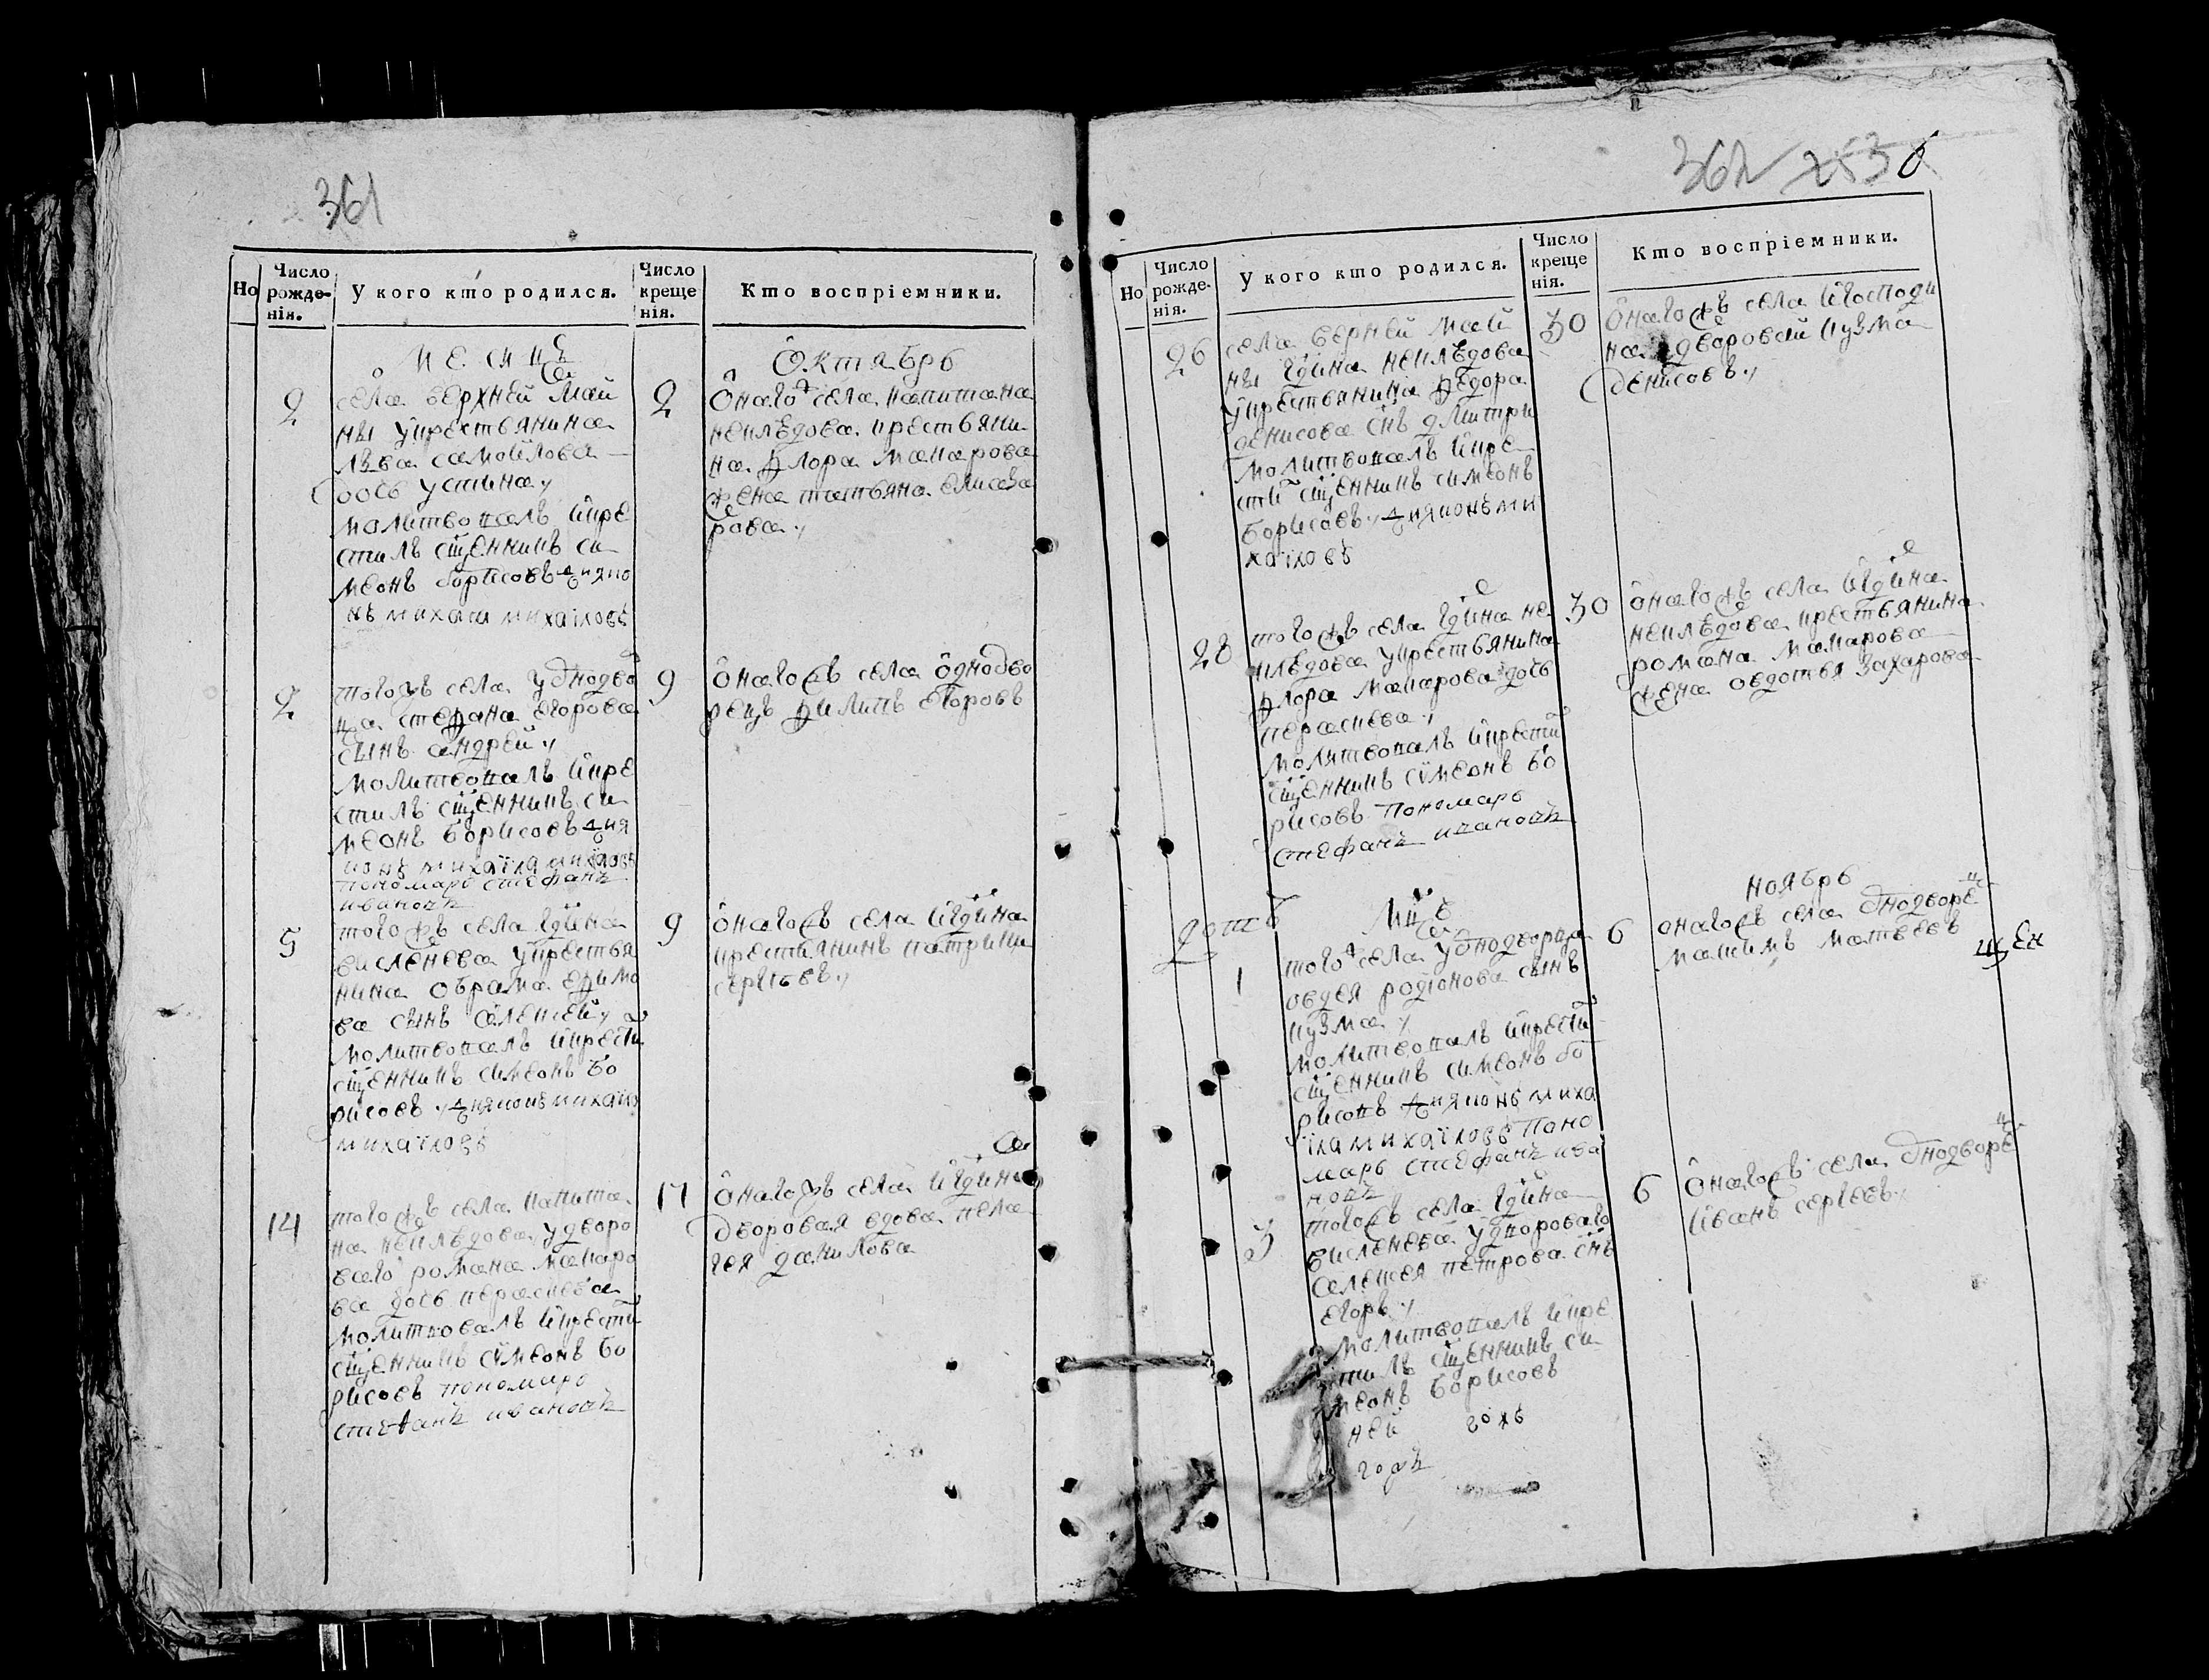 361
Но
Число рожде- нія.
У кого кто родился.
Число креще нія.
Кто воспріемники.
Октябрь
2
села верхней маи
ны укрестьянина
льва самойлова
дочь устина
молитвовалъ икре
стилъ сщенникъ си
меонъ борисовъ дияко
нъ михаил михаiловъ
2
Онаго села капитана
неклѣдова крестьяни
на флора макарова
жена татьяна елисѣа
рова
2
тогожъ села уоднодво
ца стефана егорова
сынъ андрей
молитвовалъ икре
стилъ сщенникъ си
меонъ борисовъ дия
конъ михаiла михаiловъ
пономарь стефанъ
ивановъ
9
Онагожъ села Однодво
рецъ филипъ егоровъ
5
тогожъ села гдина
висленева укрестья
нина абрама ефимо
ва сынъ алексей
молитвовалъ икрести
сщенникъ симеонъ бо
рисовъ дияконъ михаiло
михаiловъ
9
Онагожъ села игдина
крестиянинъ
сергѣевъ
14
тогожъ села капита
на неклѣдова удворо
ваго романа макаро
ва дочь парасковa
молитвовалъ икрести
сщенникъ сѵмеонъ бо
рисовъ пономарь
стефанъ ивановъ
17
Онагожъ села игдина
дворовая вдова пела
гея данилова
362 253
Но
Число рожде- нія.
У кого кто родился.
Число креще нія.
Кто воспріемники.
26
села верней маи
ны гдина неклѣдова
укрестьянина федора
денисова снъ дмитри
молитвовалъ икре
сти сщенникъ симеонъ
борисовъ дияконъ ми
хаiловъ
30
Онагожъ села игосподи
на дворовой кузма
денисовъ
28
тогожъ села гдина не
клѣдова укрестьянина
флора макарова дочь
парасковa
молитвовалъ икрести
сщенникъ сѵмеонъ бо
рисовъ пономарь
стефанъ ивановъ
30
Онагожъ села игдина
неклѣдова крестьянина
романа макарова
жена авдотья захарова
мцъ
ноябрь
1
того села уоднодворца
авдея родiонова сынъ
кузма
молитвовалъ икрести
сщенникъ симеонъ бо
рисовъ дияконъ миха
iла михаiловъ поно
марь стефанъ ива
новъ
6
онагожъ села однодворе
максимъ матвеевъ
щен
3
тогожъ села гдина
висленева удвороваго
алексея петрова снъ
егоръ
молитвовалъ икре
стилъ сщенникъ си
меонъ борисовъ
6
Онагожъ села однодворе
iванъ сергеевъ